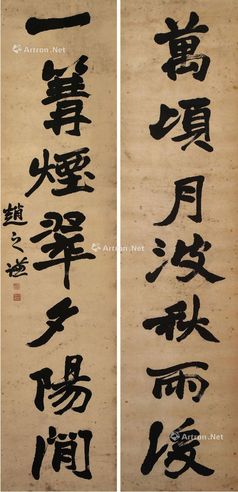 萬頃月波秋雨後
一篝煙翠夕陽閒
趙之謙
Artron.Net
Artron.Net
Artron.Net
Artron.Net